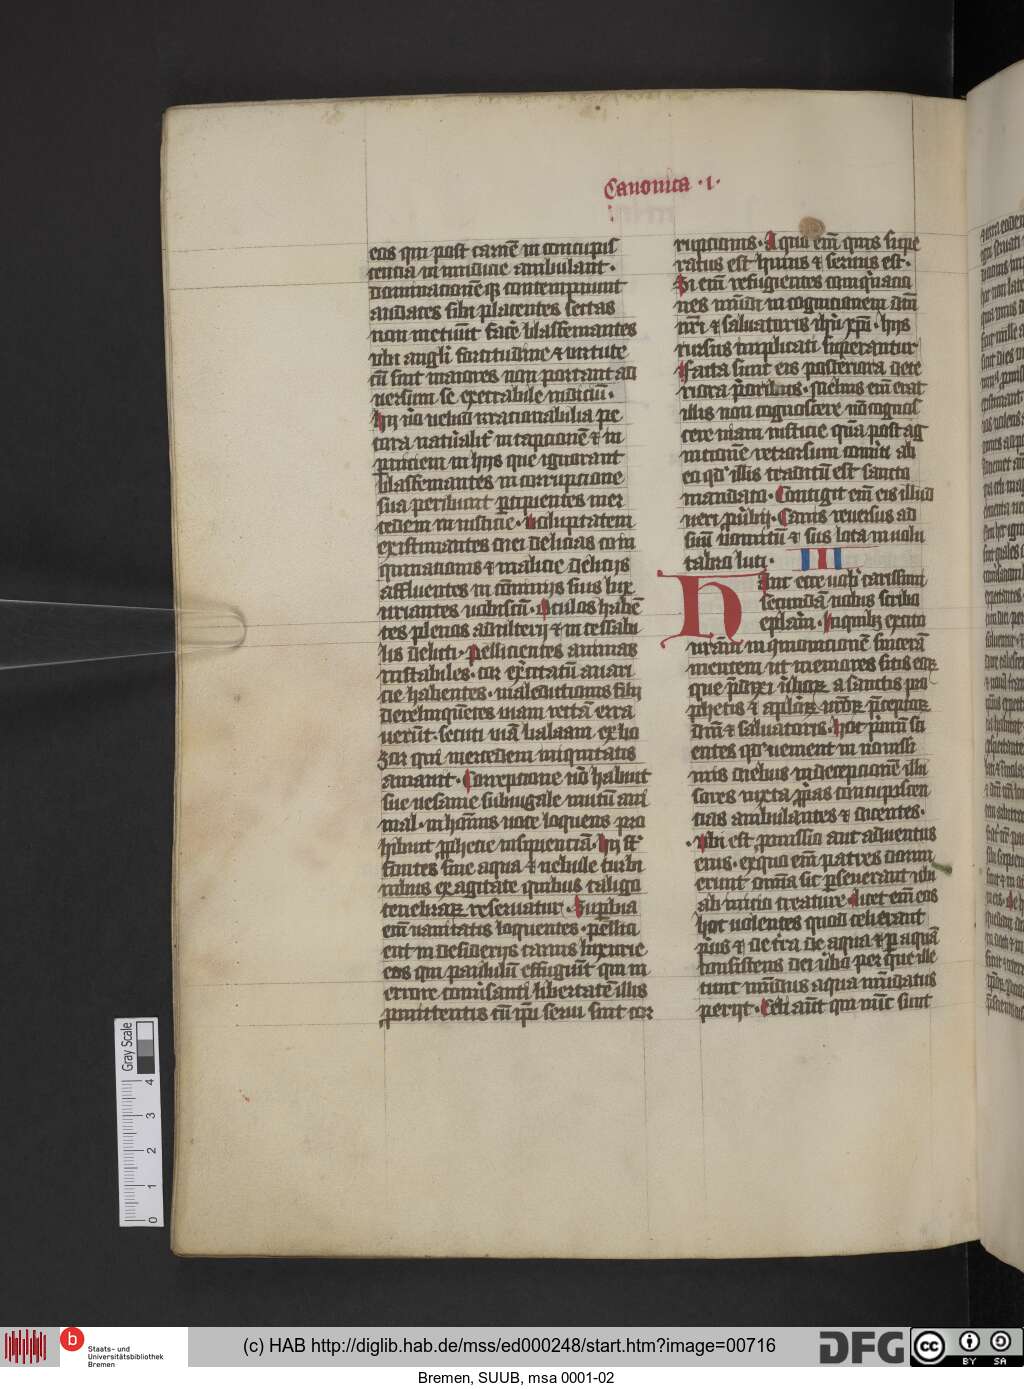 Canonica .i.
eos qui post carnē in concupis
cencia in mūdicie ambulant.
dominacionēqꝫ contempnunt
audaces sibi placentes sectas
non metuūt facē blasfemantes
vbi angli fortitudine ⁊ virtute
cū sint maiores non portant ad
uersum se execrabile iudiciū.
hij ūo uelud irracionabilia pe
cora natural'it' in tapcionē ⁊ in
pniciem in hijs que ignorant
blasfemantes in corrupcione
sua peribunt pcipientes mer
cedem iniusticie. voluptatem
existimantes diei delicias coin
quinaciones ⁊ macule delicijs
affluentes in cōuiuijs suis lux
uriantes uobiscū. oculos habē
tes plenos adulterij ⁊ incessabi
lis delicti. pellicientes animas
instabiles. cor exercitatū auari
cie habentes. maledictionis filij
derelinquētes viam rectam erra
uerūt. secuti viā balaam ex bo
zor qui mercedem iniquitatis
amauit. Correpcione uō habuit
sue uesanie subiugale mutū ani
mal. in hoīnis uoce loquens pro
hibuit pphete insipienciā. hij st̄
fontes sine aqua ⁊ nebule turbi
nibus exagitate quibus caligo
tenebraꝝ reseruatur. Superbia
em̄ uanitatis loquentes. pellici
unt in desiderijs carnis luxurie
eos qui paululū effugiūt qui in
errore cōuersant' libertatē illis
pmittentes cū ipi serui sint cor
rupcionis. A quo em̄ quis supe
ratus est huius ⁊ seruus est.
Si em̄ refugientes coinquiacio
nes mūdi in cognicionem dn̄i
nr̄i ⁊ saluatoris ihū xpī. hijs
rursus implicati superantur
facta sunt eis posteriora dete
riora prioribus. melius em̄ erat
illis non cognoscere uiā cognos
cere uiam iusticie quā post ag
nicionē retrorsum conuti ab
eo qd' illis traditū est sancto
mandato. Contigit em̄ eis illud
ueri puerbij. Canis reuersus ad
suū vomitū ⁊ sus lota in uolu
tabro luti. III
Hanc ecce uob' carissimi
secundā uobis scribo
eplam. In quibꝫ excito
uram in qmonicionē sincerā
mentem ut memores sitis eoꝝ
que pdixi ūboꝝ a sanctis pro
phetis ⁊ aploꝝ uroꝝ pceptoꝝ
dn̄i ⁊ saluatoris. hoc pimū sci
entes qd' uenient in nouissi
mis diebus in decepcionē illu
sores iuxta ppas concupiscen
cias ambulantes ⁊ dicentes.
Vbi est pmissio aut aduentus
eius. ex quo em̄ patres dormi
erunt omīa sic pseuerant ubi
ab inicio creature. Latet em̄ eos
hoc uolentes quod celi erant
pus ⁊ de tra de aqua ⁊ p aquā
consistens dei ūbo per que ille
tunc mūdus aqua inūdatus
perijt. Celi aūt qui nūc sunt
Gray Scale
4
3
2
1
0
Staats- und
Universitätsbibliothek
Bremen
(c) HAB http://diglib.hab.de/mss/ed000248/start.htm?image=00716
DFG
cc
BY SA
Bremen, SUUB, msa 0001-02